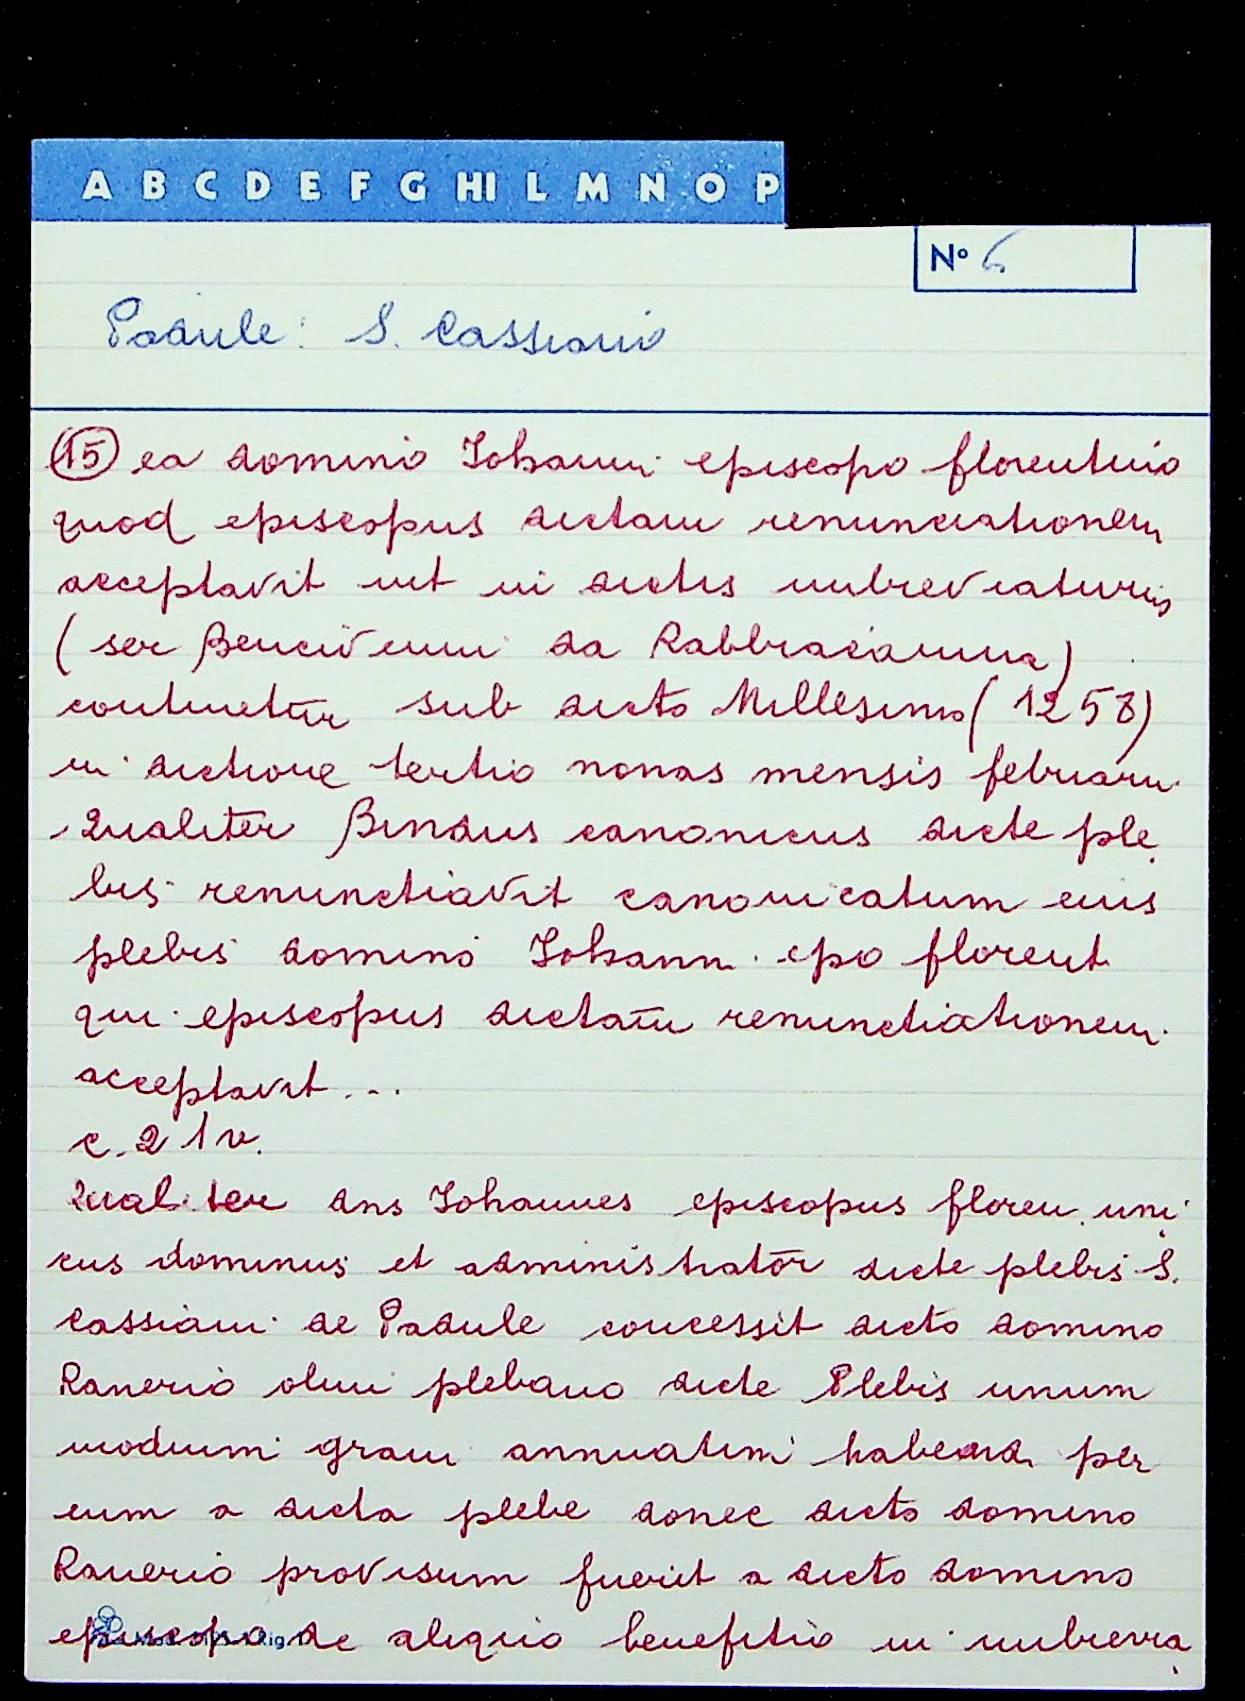 A B C D E F G HI L M N O P
N° 6
Padule: S. Cassiano
(15) ea domino Iohanni episcopo florentino
quod episcopus dictam renunciationem
acceptavit ut in dictis imbreviaturis
(ser Bencivenni da Rabbiacanina)
continetur sub dicto Millesimo (1258)
in dictione tertio nonas mensis februarii
Qualiter Bindus canonicus dicte ple
bis renunctiavit canonicatum eius
plebis domino Iohann. epo florent
qui episcopus dictam renunctiationem
acceptavit ...
c. 21v.
Qualiter dns Iohannes episcopus floren. uni
cus dominus et administrator dicte plebis S.
Cassiani de Padule concessit dicto domino
Ranerio olim plebano dicte Plebis unum
modium grani annuatim habend. per
eum a dicta plebe donec dicto domino
Ranerio provisum fuerit a dicto domino
episcopo de aliquo benefitio in imbrevia